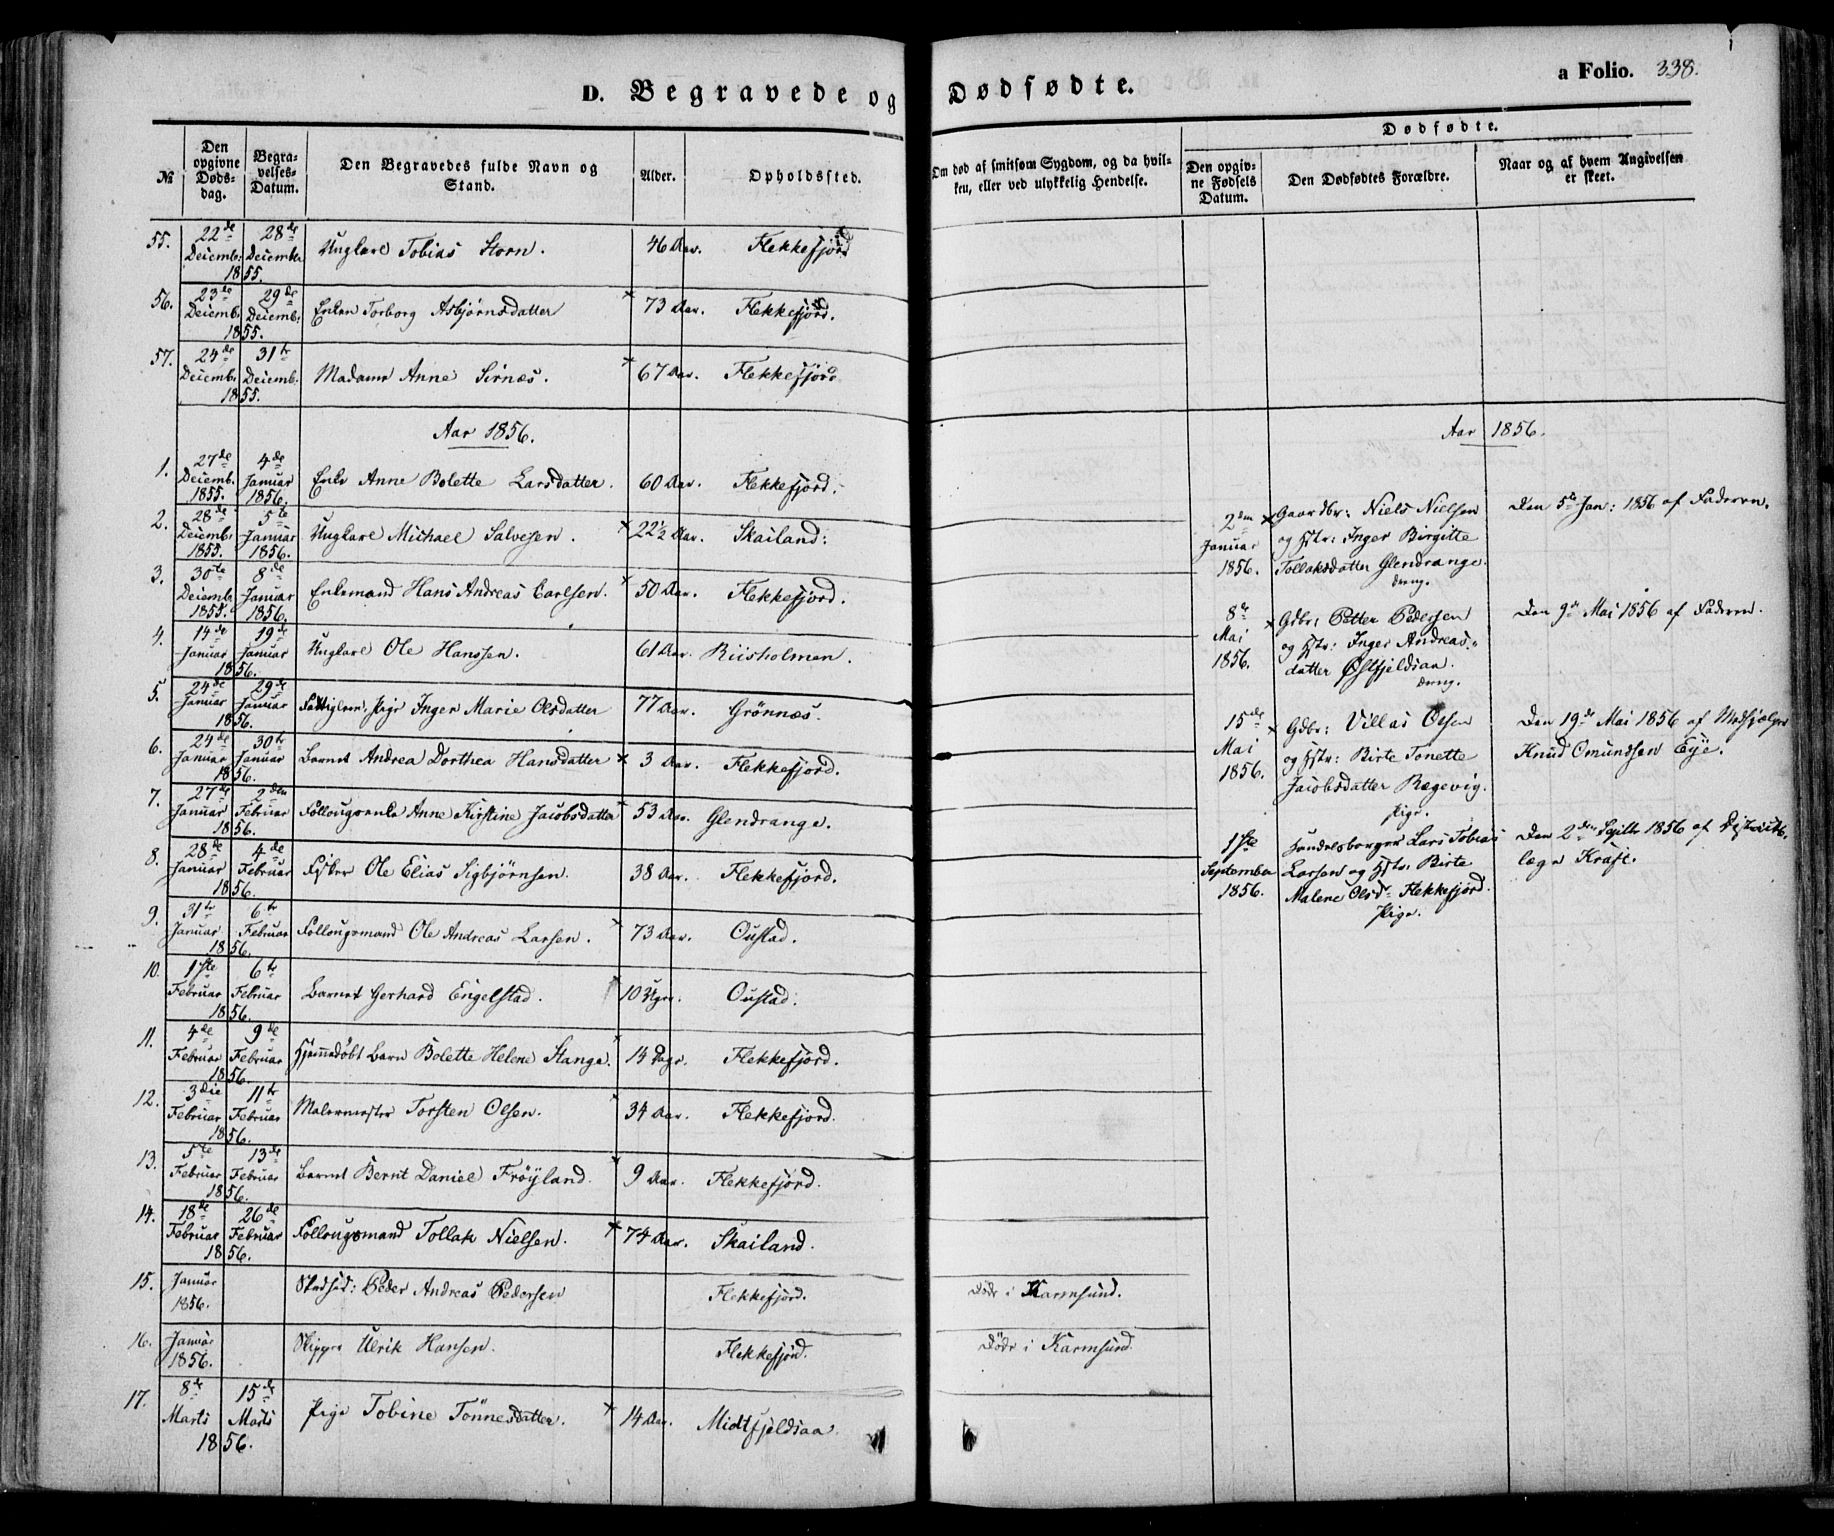 D. Begravede og Dødfødte.
a Folio. 338.
№
Den opgivne Døds-dag.
Begra-velses-Datum.
Den Begravedes fulde Navn og Stand.
Alder.
Opholdssted.
Om død af smitsom Sygdom, og da hvil-
ken, eller ved ulykkelig Hendelse.
Dødfødte.
Den opgiv-ne Fødsels Datum.
Den Dødfødtes Forældre.
Naar og af hvem Angivelsen er skeet.
55. 22de Decemb: 1855. 28de Decembr Ungkarl Tobias Storn. 46 Aar. Flekkefjord
56. 23de Decemb: 1855. 29de Decemb: Enken Torborg Asbjørnsdatter × 73 Aar. Flekkefjord.
57. 24de Decemb: 1855. 31te Decemb: Madame Anne Sirnæs. × 67 Aar. Flekkefjord
Aar 1856.
1. 27de Decemb. 1855. 4de Januar 1856. Enke Anne Bolette Larsdatter. 60 Aar. Flekkefjord.
2. 28de Decemb: 1855. 5te Januar 1856. Ungkarl Michael Salvesen. × 22½ Aar. Skailand.
3. 30te Decemb: 1855. 8de Januar 1856. Enkemand Hans Andreas Carlsen. × 50 Aar. Flekkefjord.
4. 14de Januar 1856. 19de Januar Ungkarl Ole Hanssen. 61 Aar. Riisholmen.
5. 24de Januar 1856. 29de Januar Fattiglem, Pige Inger Marie Olsdatter 77 Aar. Grönnæs.
6. 24de Januar 1856. 30te Januar Barnet Andrea Dorthea Hansdatter × 3 Aar. Flekkefjord.
7. 27de Januar 1856. 2den Februar Follougsenke Anne Kirstine Jacobsdatter × 53 Aar. Glendrange.
8. 28de Januar 1856. 4de Februar Fisker Ole Elias Sigbjörnsen. 38 Aar. Flekkefjord.
9. 31te Januar 1856. 6te Februar Follougsmand Ole Andreas Larsen. × 73 Aar. Oustad.
10. 1ste Februar 1856. 6te Februar Barnet Gerhard Engelstad. 10 Uger. Oustad.
11. 4de Februar 1856. 9de Februar Hjemmedöbt Barn Bolette Helene Stange. 14 Dage. Flekkefjord.
12. 3die Februar 1856. 11te Februar Malermester Torsten Olsen. 34 Aar. Flekkefjord.
13. 5te Februar 1856. 13de Februar Barnet Bernt Daniel Fröyland. 9 Aar. Flekkefjord.
14. 18de Februar 1856. 26de Februar Follougsmand Tollak Nielsen. × 74 Aar. Skailand.
15. Januar 1856. Peder Andreas Pedersen Flekkefjord. Död i Karmsund.
16. Januar 1856. Skipper Ulrik Hansen. Flekkefjord. Död i Karmsund.
17. 8de Marts 1856. 15de Marts Pige Tobine Tönnesdatter. × 14 Aar. Midtfjeldsaa
Aar 1856.
2den Januar 1856. × Gaardbr: Niels Nielsen
og Hstr: Inger Birgitte
Tollaksdatter Glendrange.
dreng.
Den 5te Jan: 1856 af Faderen.
8de Mai 1856. × Gdbr: Petter Pedersen
og Hstr: Inger Andreas-
datter Østfjeldsaa.
dreng.
Den 9de Mai 1856 af Faderen.
15de Mai 1856. × Gdbr: Villas Olsen
og Hstr: Birte Tonette
Jacobsdatter Rægevig.
Pige.
Den 19de Mai 1856 af Medhjelper
Knud Omundsen Eye.
1ste September 1856. Handelsborger Lars Tobias
Larsen og Hstr: Birte
Malene Olsd: Flekkefjord.
Pige.
Den 2den Septb 1856 af Districts-
læge Kraft.